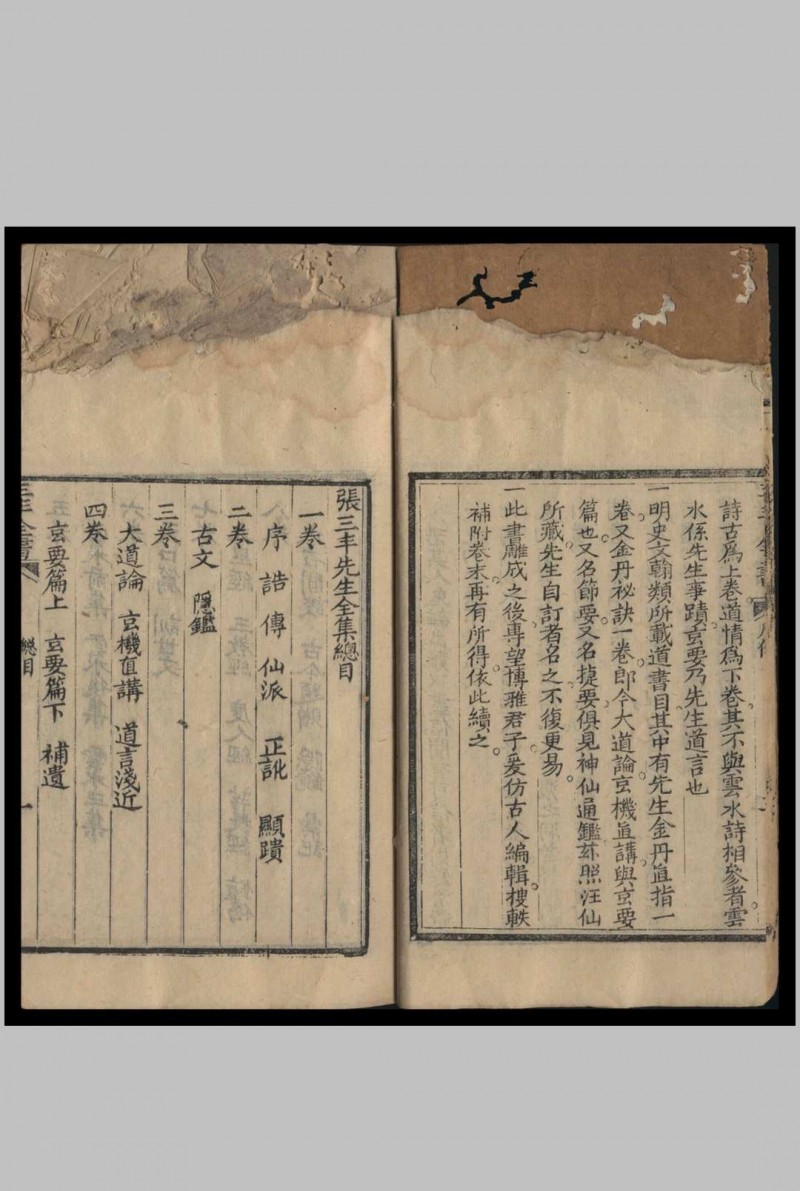 詩古爲上卷道情爲下卷其不與雲水詩相參者雲
水係先生事蹟玄要乃先生道言也
一明史文翰類所載道書目其中有先生金丹直指一
卷又金丹祕訣一卷郎今大道論玄機直講與玄要
篇也又名節要又名捷要俱見神仙通鑑玆照汪仙
所藏先生自訂者名之不復更易
一此書雕成之後專望博雅君子爰仿古人編輯搜軼
補附卷末再有所得依此續之
張三丰先生全集總目
一卷
序 誥 傳 仙派 正訛 顯蹟
二卷
古文 隱鑑
三卷
大道論 玄機直講 道言淺近
四卷
玄要篇上 玄要篇下 補遺
總目 一